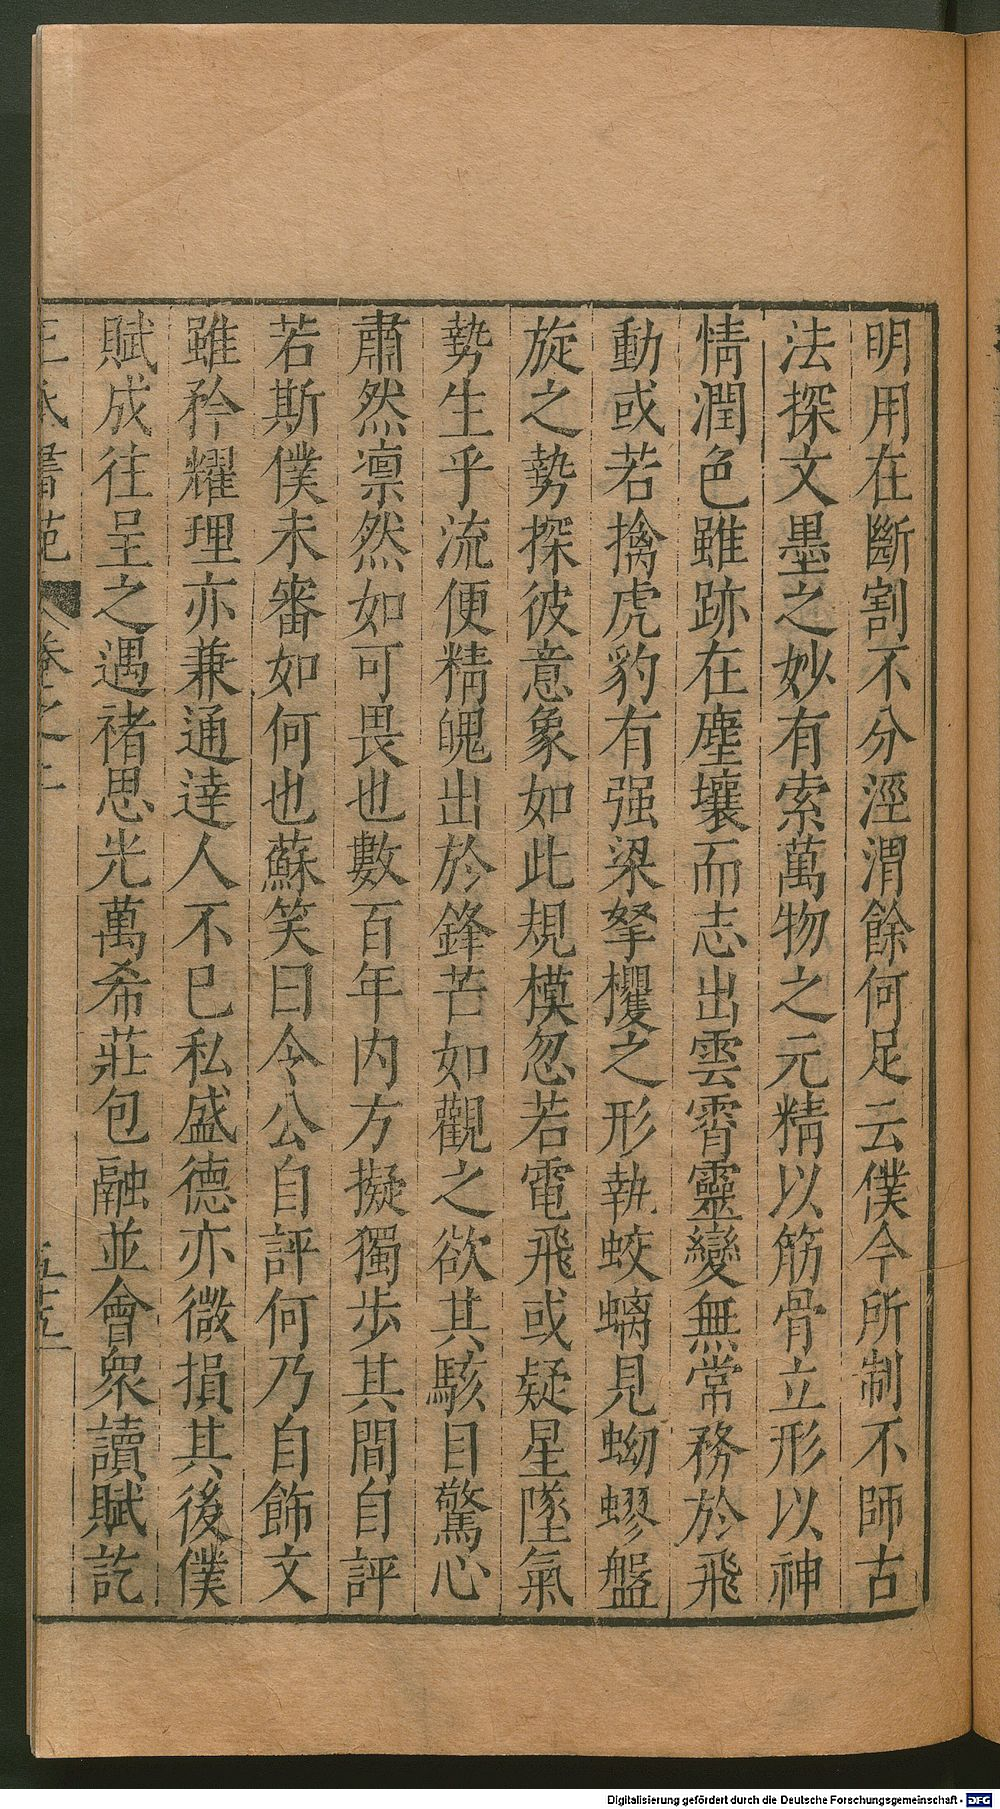 明用在斷割不分涇渭餘何足云僕今所制不師古
法探文墨之妙有索萬物之元精以筋骨立形以神
情潤色雖跡在塵壤而志出雲霄靈變無常務於飛
動或若擒虎豹有强梁拏攫之形執蛟螭見蚴蟉盤
旋之勢探彼意象如此規模忽若電飛或疑星墜氣
勢生乎流便精魄出於鋒芒如觀之欲其駭目驚心
肅然凛然如可畏也數百年内方擬獨步其間自評
若斯僕未審如何也蘇笑曰令公自評何乃自飾文
雖矜耀理亦兼通達人不巳私盛德亦微損其後僕
賦成往呈之遇禇思光萬希莊包融並會衆讀賦訖
王氏書苑 卷之二 五十五
Digitalisierung gefördert durch die Deutsche Forschungsgemeinschaft - DFG